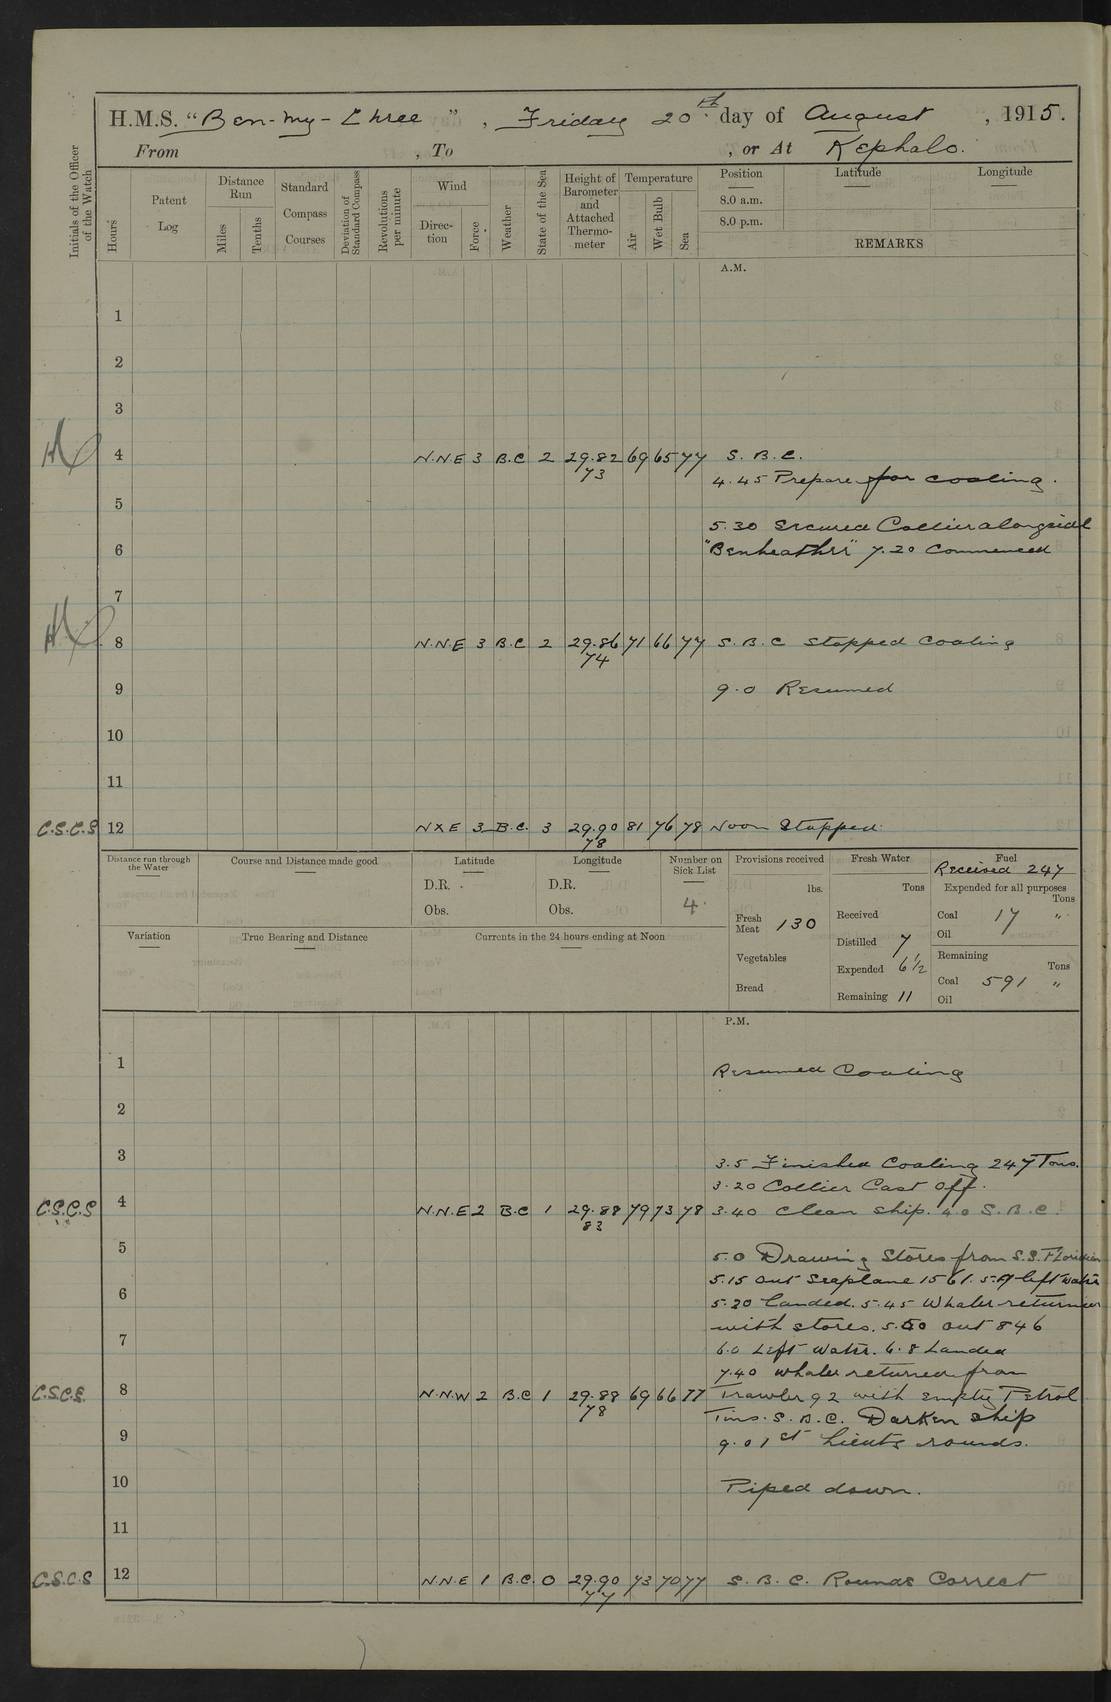 H.M.S. "Ben-my-Chree", Friday 20th day of August, 1915.
From , To , or At Kephalo.
Initials of the Officer of the Watch
Hours
Patent Log
Distance Run
Miles
Tenths
Standard Compass Courses
Deviation of Standard Compass
Revolutions per minute
Wind
Direction
Force
Weather
State of the Sea
Height of Barometer and Attached Thermometer
Temperature
Air
Wet Bulb
Sea
Position
Latitude
Longitude
8.0 a.m.
8.0 p.m.
REMARKS
A.M.
1
2
3
4 N.N.E 3 B.C 2 29.82 69 65 77 S. B. C.
73
4.45 Prepare for coaling.
5
5.30 Secured Collier alongside
6 "Benheather" 7.20 Commenced
7
8 N.N.E 3 B.C 2 29.86 71 66 77 S. B. C Stopped Coaling
74
9 9.0 Resumed
10
11
C.S.C.S 12 NXE 3 B.C. 3 29.90 81 76 78 Noon Stopped.
78
Distance run through the Water
Course and Distance made good
Latitude
D.R.
Obs.
Longitude
D.R.
Obs.
Number on Sick List
4
Provisions received
lbs.
Fresh Meat 130
Vegetables
Bread
Fresh Water
Tons
Received
Distilled 7
Expended 6½
Remaining 11
Fuel
Received 247
Expended for all purposes
Tons
Coal 17 "
Oil
Remaining
Tons
Coal 591 "
Oil
Variation
True Bearing and Distance
Currents in the 24 hours ending at Noon
P.M.
1 Resumed Coaling
2
3 3.5 Finished Coaling 247 Tons.
3.20 Collier Cast off.
C.S.C.S 4 N.N.E 2 B.C 1 29.88 79 73 78 3.40 Clean ship. 4.0 S.B.C.
83
5 5.0 Drawing Stores from S.S. Floridian
5.15 out Seaplane 1561. 5.17 left water
6 5.20 Landed. 5.45 Whaler returned
with stores. 5.50 out 846
7 6.0 Left water. 6.8 Landed
7.40 whaler returned from
C.S.C.S. 8 N.N.W 2 B.C 1 29.88 69 66 77 Trawler 92 with empty Petrol
78
Tins. S.B.C. Darken ship
9 9.0 1st Lieuts rounds.
10 Piped down.
11
C.S.C.S 12 N.N.E 1 B.C. 0 29.90 73 70 77 S. B. C. Rounds Correct
77